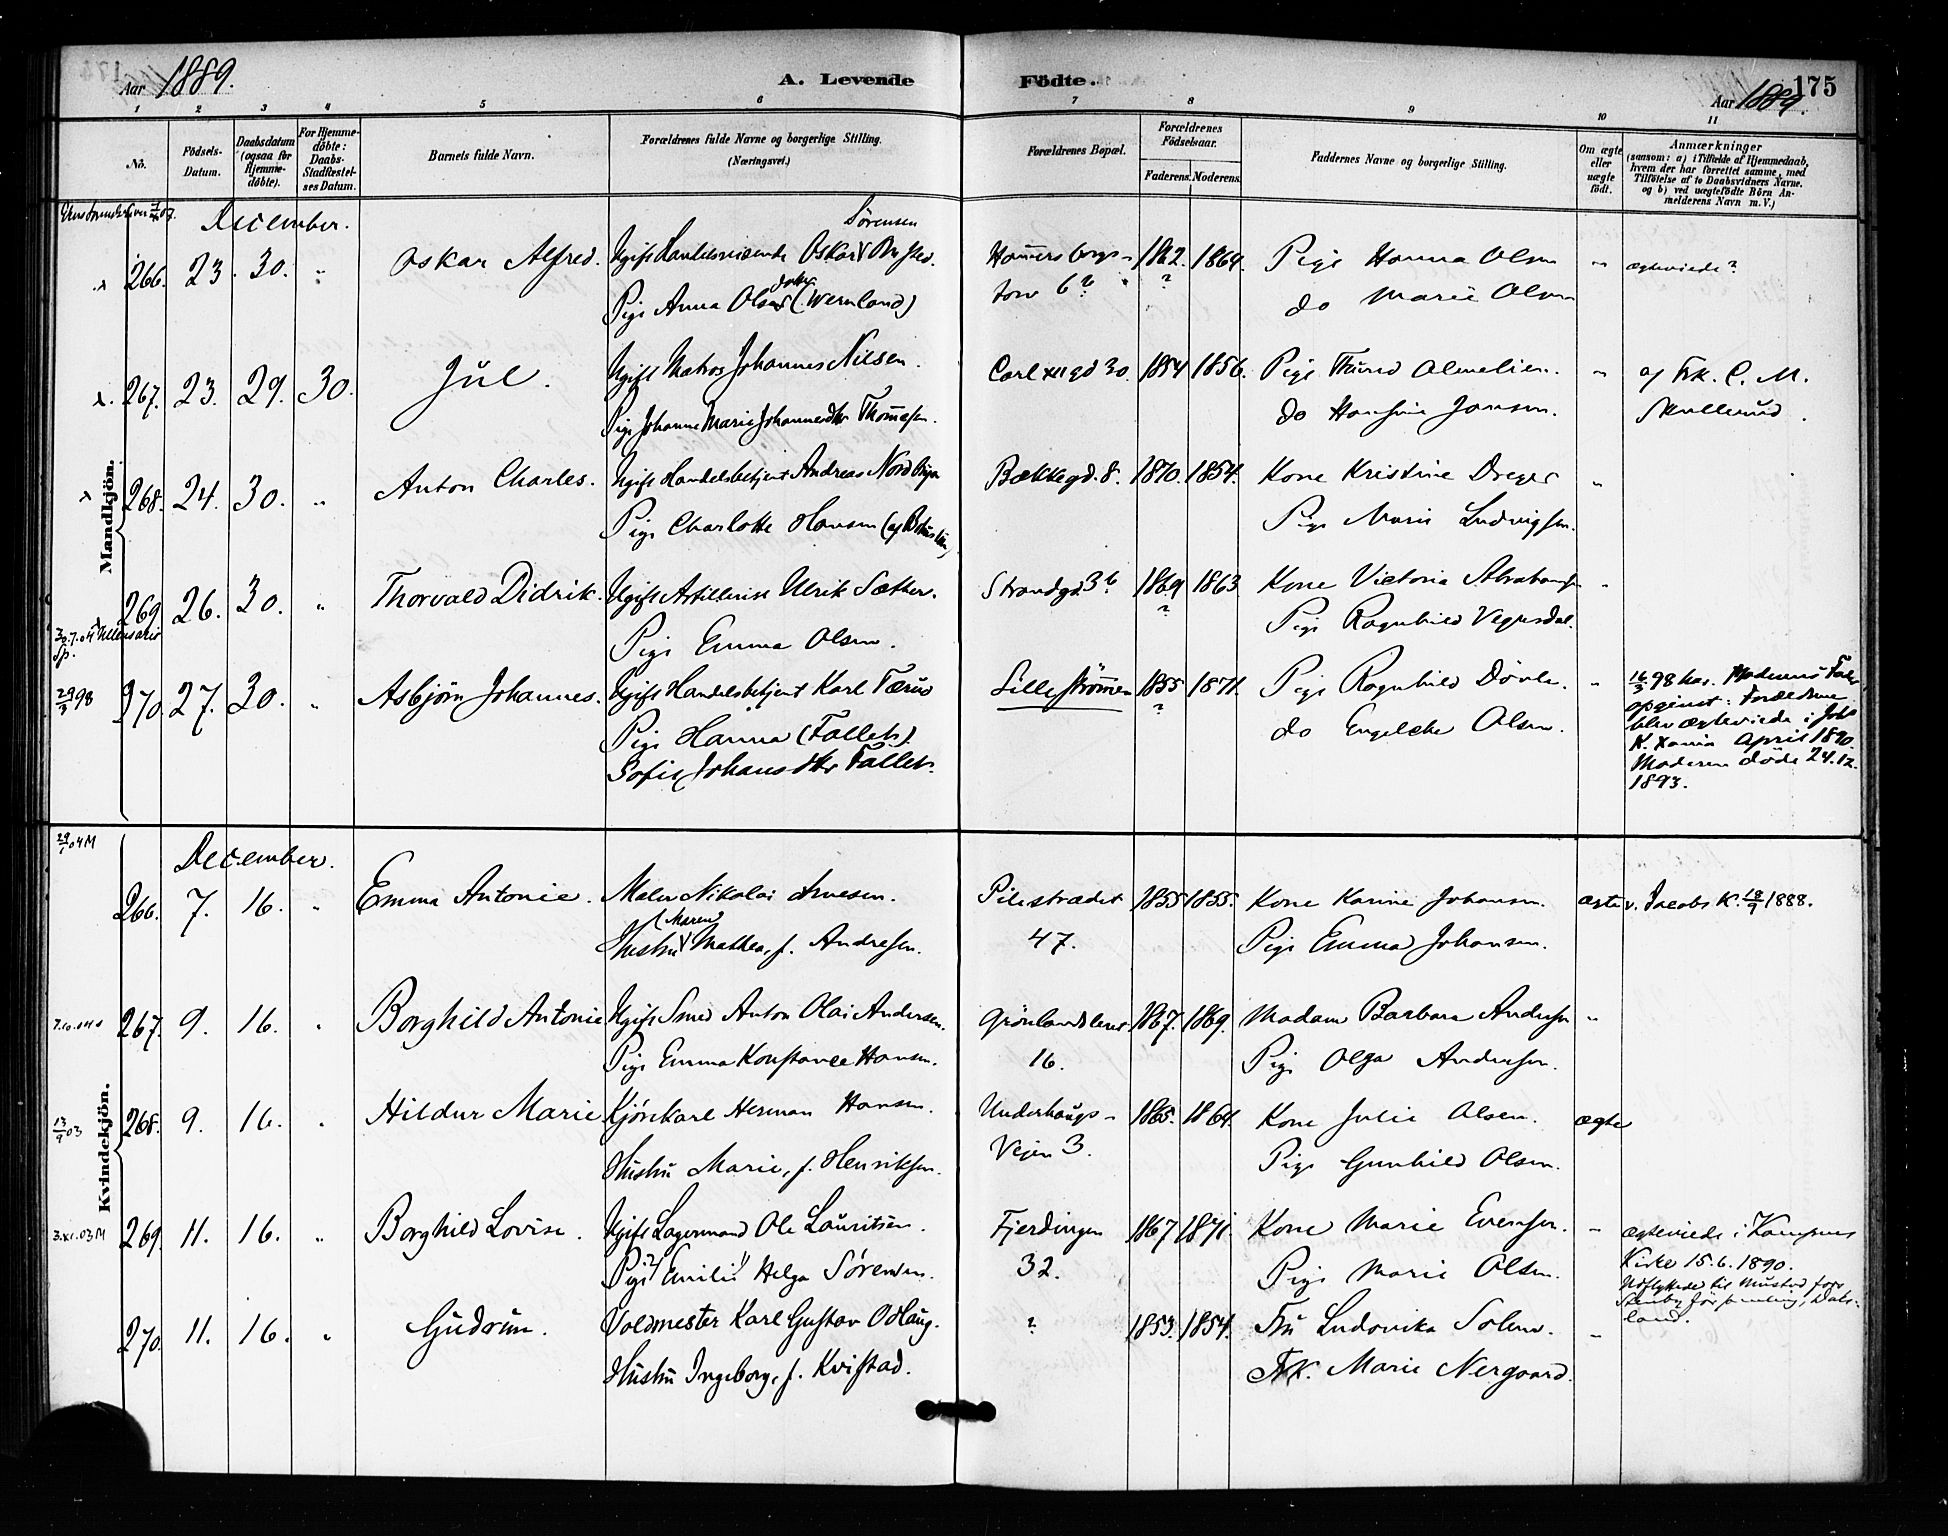 Aar 1889.
A. Levende Födte.
Aar 1889.
175
1 2 3 4 5 6 7 8 9 10 11
No.
Födsels-Datum.
Daabsdatum (ogsaa for Hjemme-döbte).
For Hjemme-döbte: Daabs-Stadfæstel-ses Datum.
Barnets fulde Navn.
Forældrenes fulde Navne og borgerlige Stilling. (Næringsvei.)
Forældrenes Bopæl.
Forældrenes Födselsaar.
Faderens. Moderens.
Faddernes Navne og borgerlige Stilling.
Om ægte eller uægte födt.
Anmærkninger
(saasom: a) i Tilfælde af Hjemmedaab,
hvem der har forrettet samme, med
Tilföielse af to Daabsvidners Navne.
og b) ved uægtefödte Börn An-
melderens Navn m. V.)
Mandkjön.
December.
Sörensen
266. 23. 30. " Oskar Alfred. Ugift Handelsreisende Oskar Brysted. Hammersborgs- 1862. 1864. Pige Hanna Olsen " ægteviede?
Pige Anna Olsen datter (Wermland) torv 6? ? do Marie Olsen
267. 23. 29. 30. Jul. Ugift Matros Johannes Nilsen. Carl XII gd 30. 1854 1856. Pige Thurid Almelien. " af Frk. C. M.
Pige Johanne Marie Johannesdtr Thomasen. do Hansine Jansen. Skullerud.
268. 24. 30. " Anton Charles. Ugift Handelsbetjent Andreas Nordbye Bækkegd. 8. 1870. 1854. Kone Kristine Dreyer "
Pige Charlotte Hansen Pige Marie Ludvigsen.
269. 26. 30. " Thorvald Didrik. Ugift Artillerist Ulrik Sæther. Strandgd. 3b 1869 1863 Kone Victoria Abrahamsen "
30.7.04 Ullensaker
Sp. Pige Emma Olsen. ? Pige Ragnhild Vegusdal.
29/3 98 270. 27. 30. " Asbjörn Johannes. Ugift Handelsbetjent Karl Færus Lilleströmmen 1855 1871. Pige Ragnhild Dövle. " 16/3 98 har Moderens Fader
Pige Hanna (Falleth) ? do Engelche Olsen. opgivet: Forældrene
Sofie Johansdtr Falleth. blev ægteviede i Joh.
K. Xania April 1890.
Moderen døde 24.12.
1893.
Kvindekjön.
29/1 04 M
December.
266. 7. 16. " Emma Antonie. Maler Nikolai Arnesen. Pilestrædet 1855 1855. Kone Karine Johansen. ægte v. Jacobs K. 18/9 1888.
(Maren)
Hustru Mathea, f. Andresen. 47. Pige Emma Johansen.
267. 9. 16. " Borghild Antonie Ugift Smed Anton Olai Andersen. Grönlandsleret 1867. 1869. Madam Barbara Andersen "
Pige Emma Konstance Hansen. 16. Pige Olga Andersen.
13/9 03 268. 9. 16. " Hildur Marie Kjörekarl Herman Hansen. Underhaugs- 1865. 1864. Kone Julie Olsen. ægte
Hustru Marie, f. Henriksen. Vejen 3. Pige Gunhild Olsen.
3.XI.03 M 269. 11. 16. " Borghild Lovise. Ugift Lagermand Ole Lauritsen. Fjerdingen 1867 1871. Kone Marie Evensen. " ægteviede i Kampens
Pige Emilie Helga Sörensen. 32. Pige Marie Olsen. Kirke 15.6.1890.
Udflyttede til
270. 11. 16. " Gudrun. Voldmester Karl Gustav Odlaug. ? 1853. 1854. Fru Ludovika Solem. "
Hustru Ingeborg, f. Kvistad. Frk. Marie Nergaard.